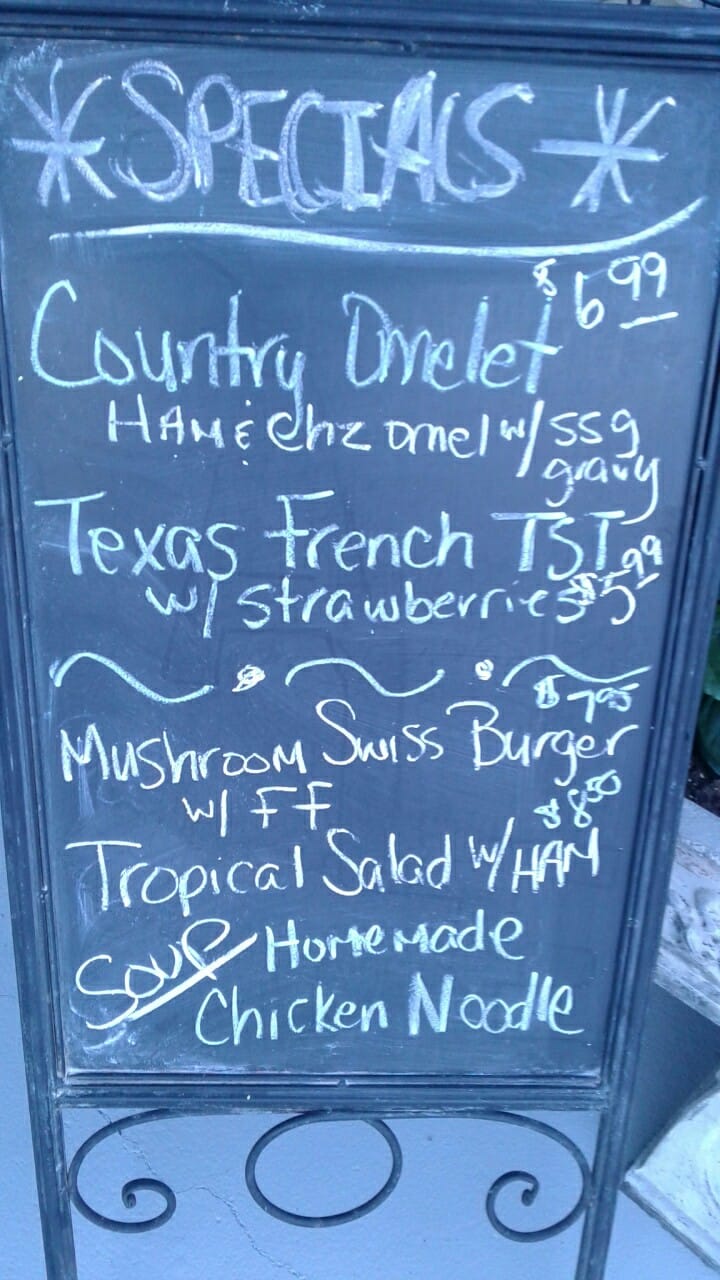 *SPECIALS*
$6.99
Country Omelet
HAM & Chz Omel w/ SSg
gravy
Texas French TST
w/ strawberries $5.99
$7.95
Mushroom Swiss Burger
w/ FF
$8.50
Tropical Salad w/ HAM
Soup Homemade
Chicken Noodle